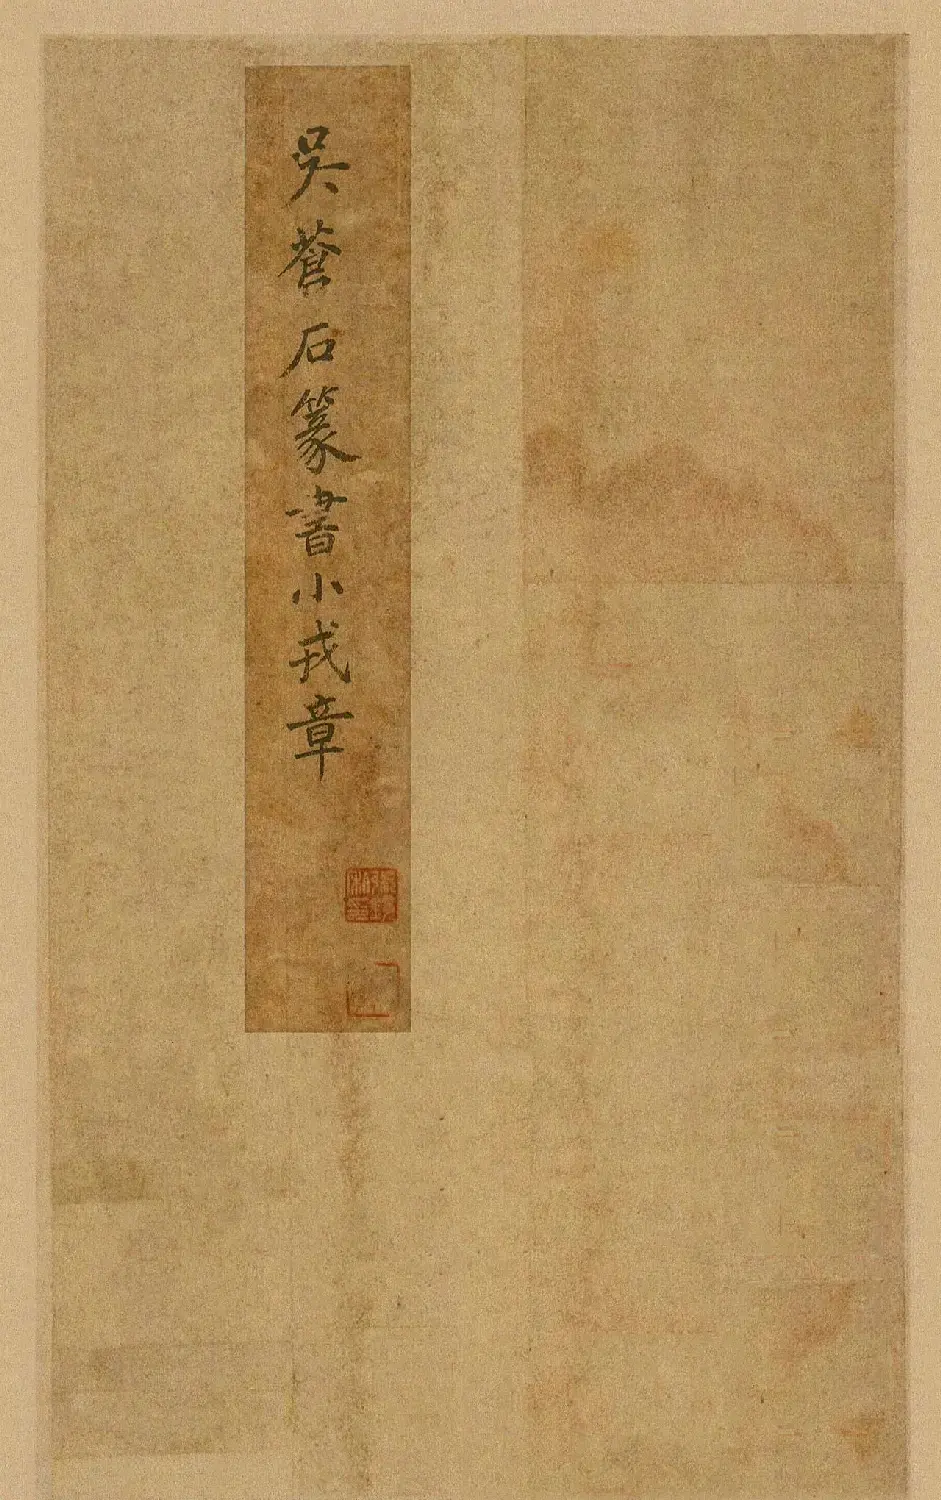 吴蒼石篆書小戎章